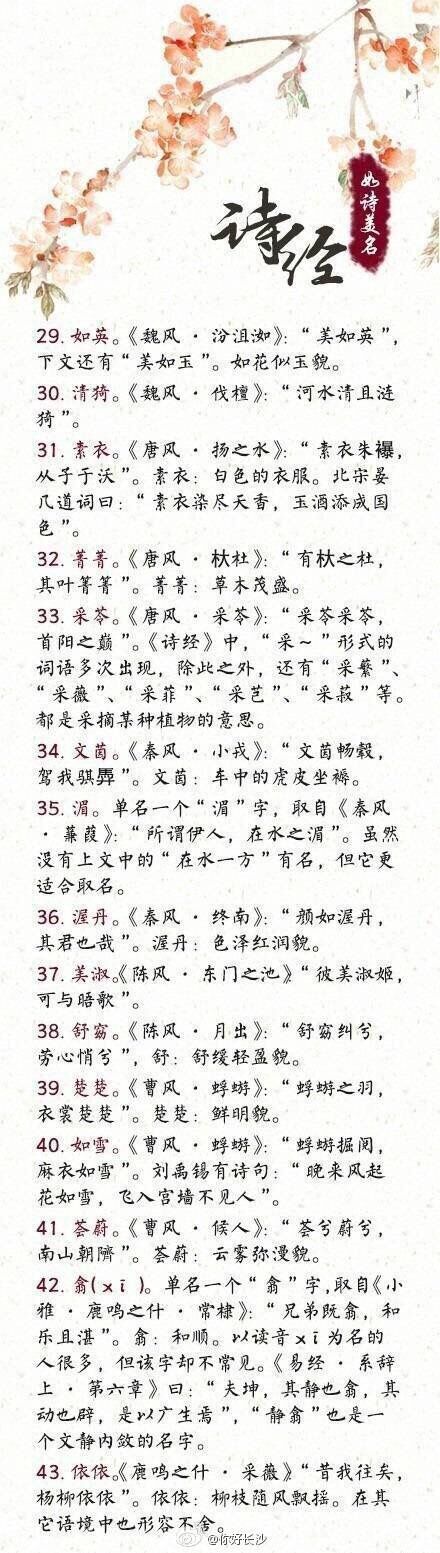 诗经
如诗美名
29. 如英。《魏风 · 汾沮洳》：“美如英”，
下文还有“美如玉”。如花似玉貌。
30. 清猗。《魏风 · 伐檀》：“河水清且涟
猗”。
31. 素衣。《唐风 · 扬之水》：“素衣朱襮，
从子于沃”。素衣：白色的衣服。北宋晏
几道词曰：“素衣染尽天香，玉酒添成国
色”。
32. 菁菁。《唐风 · 杕杜》：“有杕之杜，
其叶菁菁”。菁菁：草木茂盛。
33. 采苓。《唐风 · 采苓》：“采苓采苓，
首阳之巅”。《诗经》中，“采～”形式的
词语多次出现，除此之外，还有“采蘩”、
“采薇”、“采菲”、“采芑”、“采菽”等。
都是采摘某种植物的意思。
34. 文茵。《秦风 · 小戎》：“文茵畅毂，
驾我骐馵”。文茵：车中的虎皮坐褥。
35. 湄。单名一个“湄”字，取自《秦风
· 蒹葭》：“所谓伊人，在水之湄”。虽然
没有上文中的“在水一方”有名，但它更
适合取名。
36. 渥丹。《秦风 · 终南》：“颜如渥丹，
其君也哉”。渥丹：色泽红润貌。
37. 美淑。《陈风 · 东门之池》“彼美淑姬，
可与晤歌”。
38. 舒窈。《陈风 · 月出》：“舒窈纠兮，
劳心悄兮”，舒：舒缓轻盈貌。
39. 楚楚。《曹风 · 蜉蝣》：“蜉蝣之羽，
衣裳楚楚”。楚楚：鲜明貌。
40. 如雪。《曹风 · 蜉蝣》：“蜉蝣掘阅，
麻衣如雪”。刘禹锡有诗句：“晚来风起
花如雪，飞入宫墙不见人”。
41. 荟蔚。《曹风 · 候人》：“荟兮蔚兮，
南山朝隮”。荟蔚：云雾弥漫貌。
42. 翕(xī)。单名一个“翕”字，取自《小
雅 · 鹿鸣之什 · 常棣》：“兄弟既翕，和
乐且湛”。翕：和顺。以读音xī为名的
人很多，但该字却不常见。《易经 · 系辞
上 · 第六章》曰：“夫坤，其静也翕，其
动也辟，是以广生焉”，“静翕”也是一
个文静内敛的名字。
43. 依依。《鹿鸣之什 · 采薇》“昔我往矣，
杨柳依依”。依依：柳枝随风飘摇。在其
它语境中也形容不舍。
@你好长沙